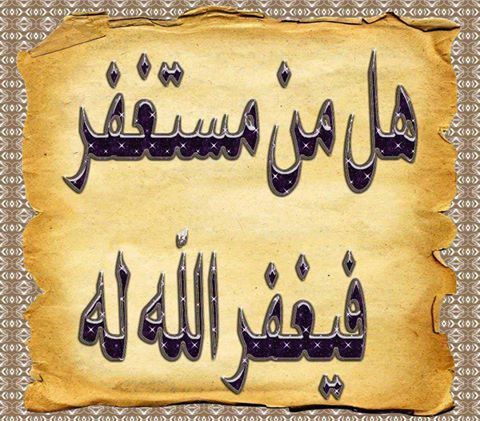 هل من مستغفر
فيغفر الله له